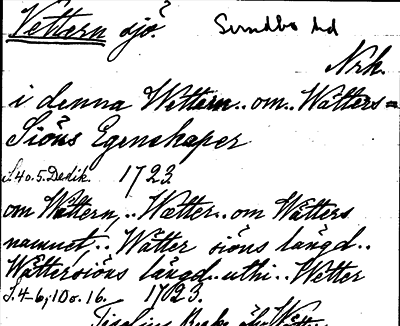 Vettern sjö. Sundbo hd
Nrk.
i denna Wettern.. om.. Wätters=
Siöns Egenskaper
S. 4 o. 5. Dedik. 1723
om Wättern,.. Wætter.. om Wätters
namnet,.. Wätter siöns längd..
Wättersiöns längd.. uthi.. Wetter
S. 4-6, 10 o. 16. 1723.
Tiselius